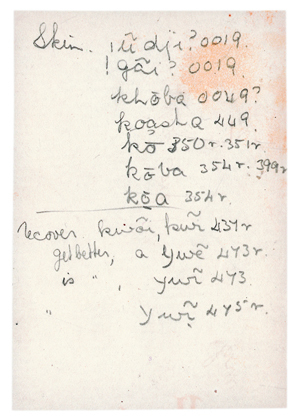 Skin. !ũ dji? 0019.
!gãi? 0019.
khōba 0049?
koasha 449.
kō 350r. 351r.
kōba 354r. 399r
kōa 354r.
recover. kwõi, kwĩ 437r
get better, a ywẽ 473r.
is " , ywĩ 473.
" ywĩ 475r.